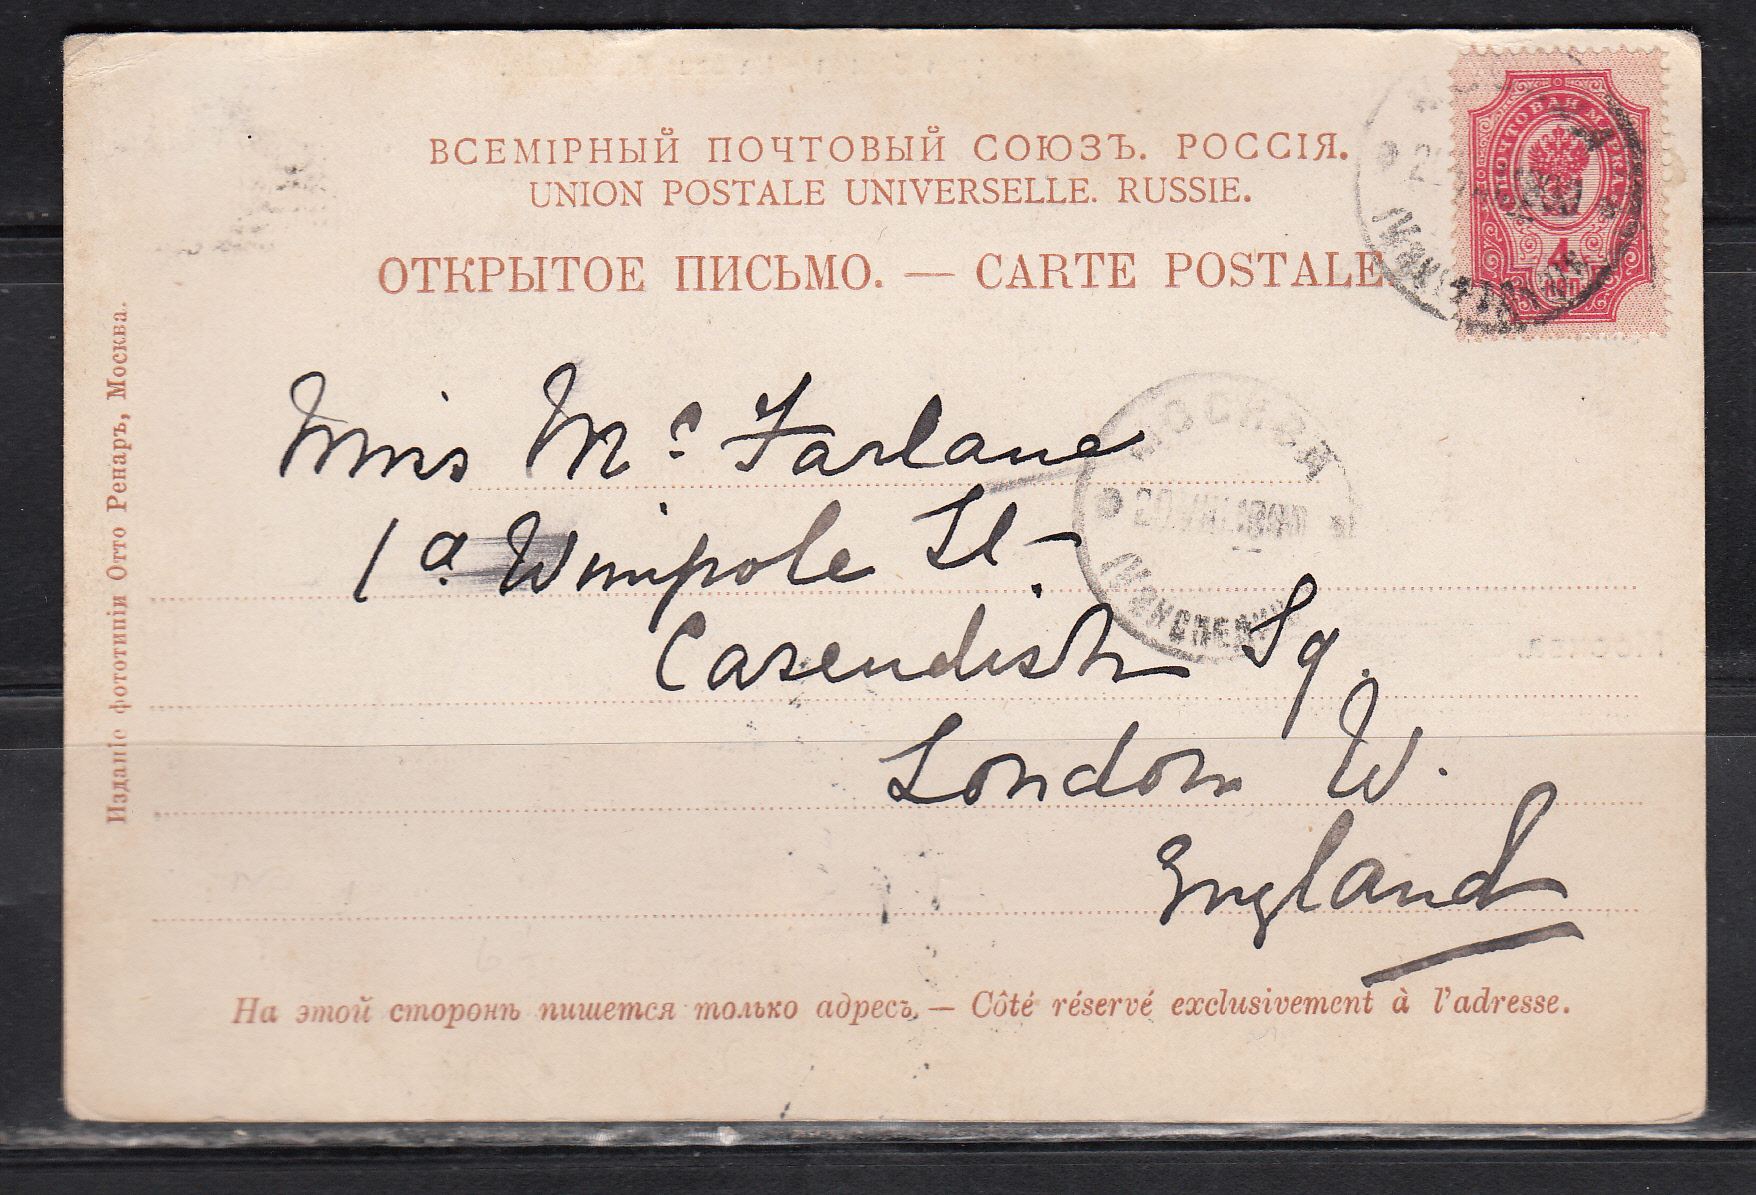 ВСЕМІРНЫЙ ПОЧТОВЫЙ СОЮЗЪ. РОССІЯ.
UNION POSTALE UNIVERSELLE. RUSSIE.
ОТКРЫТОЕ ПИСЬМО. — CARTE POSTALE
ПОЧТОВАЯ МАРКА
4
КОП
Miss Mc Farlane
1a Wimpole St
Cavendish Sq.
London W.
England
МОСКВА
На этой сторонѣ пишется только адресъ. — Côté réservé exclusivement à l'adresse.
Изданіе фототипіи Отто Ренаръ, Москва.